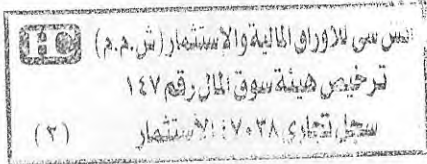 اتش سى للأوراق المالية والاستثمار (ش.م.م)
ترخيص هيئة سوق المال رقم ١٤٧
سجل تجارى ٧٠٣٨: الاستثمار
(٣)